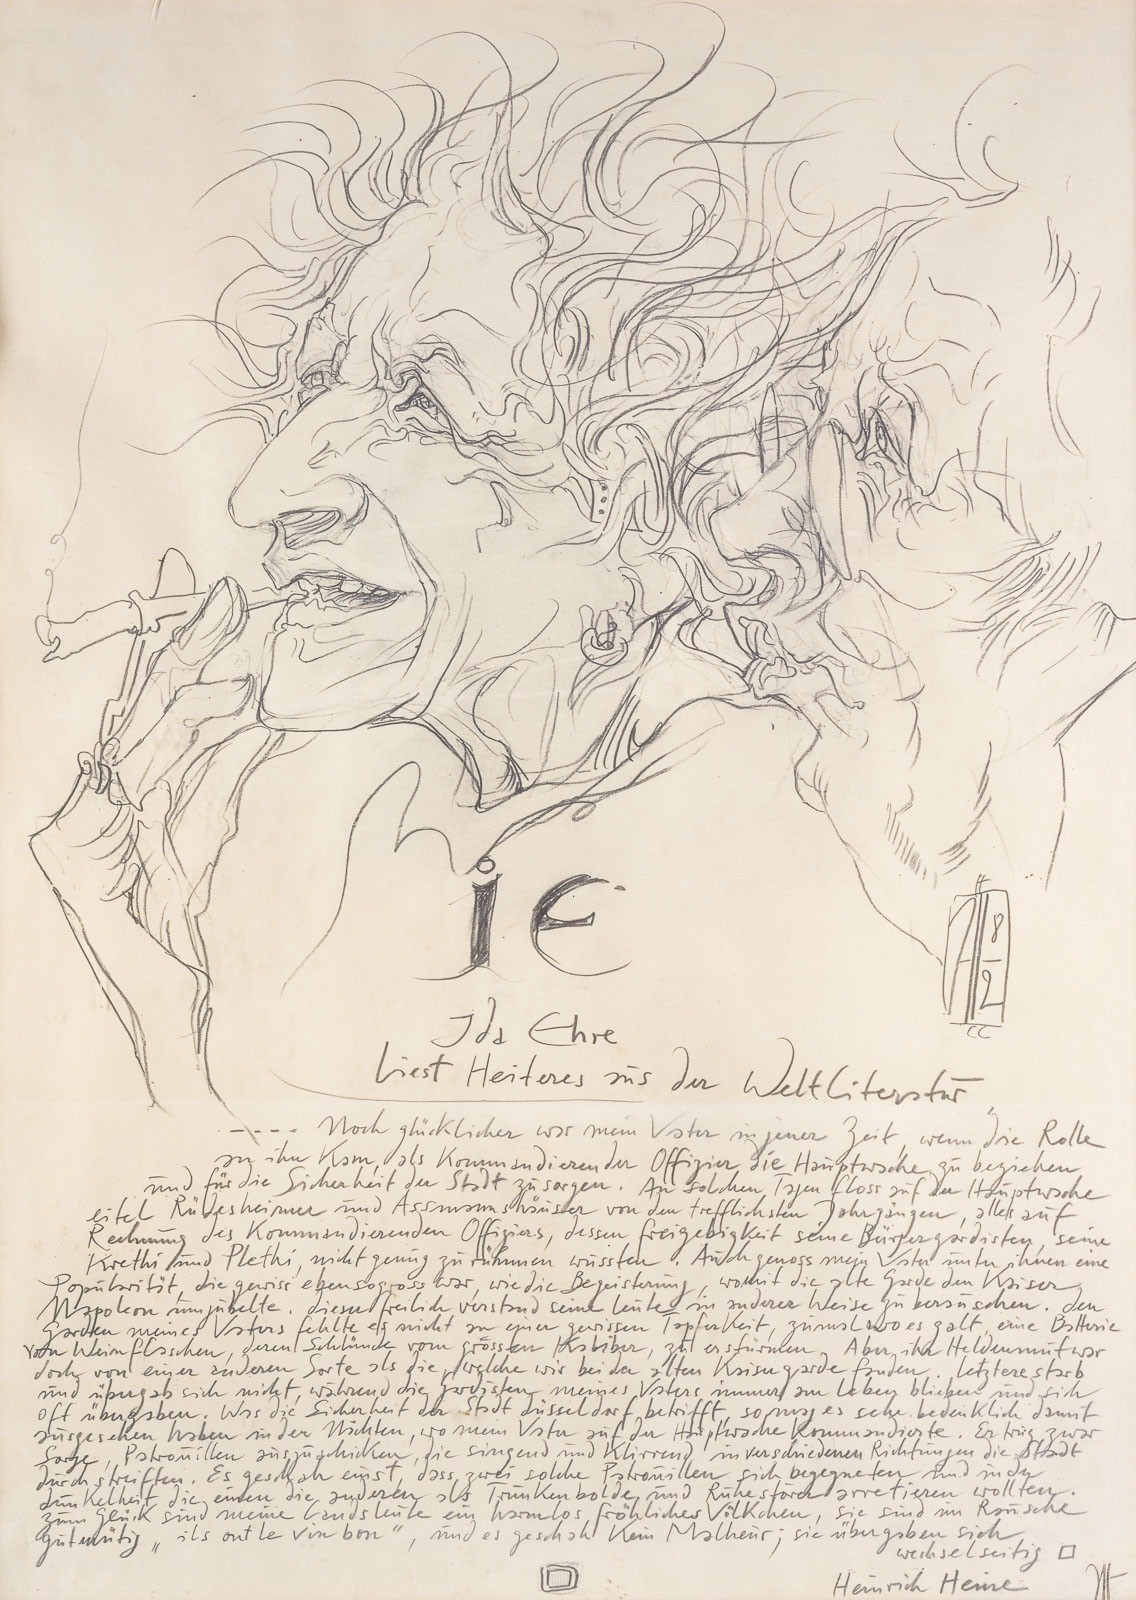 jE
8
2
Ida Ehre
liest Heiteres aus der Weltliteratur
---- Noch glücklicher war mein Vater in jener Zeit, wenn die Rolle
an ihn kam, als Kommandierender Offizier die Hauptwache zu beziehen
und für die Sicherheit der Stadt zu sorgen. An solchen Tagen floss auf der Hauptwache
eitel Rüdesheimer und Assmannshäuser von den trefflichsten Jahrgängen, alles auf
Rechnung des Kommandierenden Offiziers, dessen freigebigkeit seine Bürgergardisten, seine
Krethi und Plethi, nicht genug zu rühmen wussten. Auch genoss mein Vater unter ihnen eine
Popularität, die gewiss ebensogross war, wie die Begeisterung, womit die alte Garde den Kaiser
Napoleon umjubelte. dieser freilich verstand seine leute in anderer Weise zu berauschen. den
Garden meines Vaters fehlte es nicht an einer gewissen Tapferkeit, zumal wo es galt, eine Batterie
von Weinflaschen, deren Schlünde vom grössten Kaliber, zu erstürmen. Aber ihr Heldenmut war
doch von einer anderen Sorte als die, welche wir bei der alten Kaisergarde fanden. letztere starb
und übergab sich nicht, während die gardisten meines Vaters immer am leben blieben und sich
oft übergaben. Was die Sicherheit der Stadt düsseldorf betrifft, so mag es sehr bedenklich damit
ausgesehen haben in den Nächten, wo mein Vater auf der Hauptwache Kommandierte. Er trug zwar
Sorge, Patrouillen auszuschicken, die singend und klirrend in verschiedenen Richtungen die Stadt
durchstreiften. Es geschah einst, dass zwei solche Patrouillen sich begegneten und in der
dunkelheit die einen die anderen als Trunkenbolde und Ruhestörer arretieren wollten.
zum Glück sind meine landsleute ein harmlos fröhliches Völkchen, sie sind im Rausche
gutmütig „ils ont le vin bon", und es geschah kein Malheur; sie übergaben sich
wechselseitig
Heinrich Heine